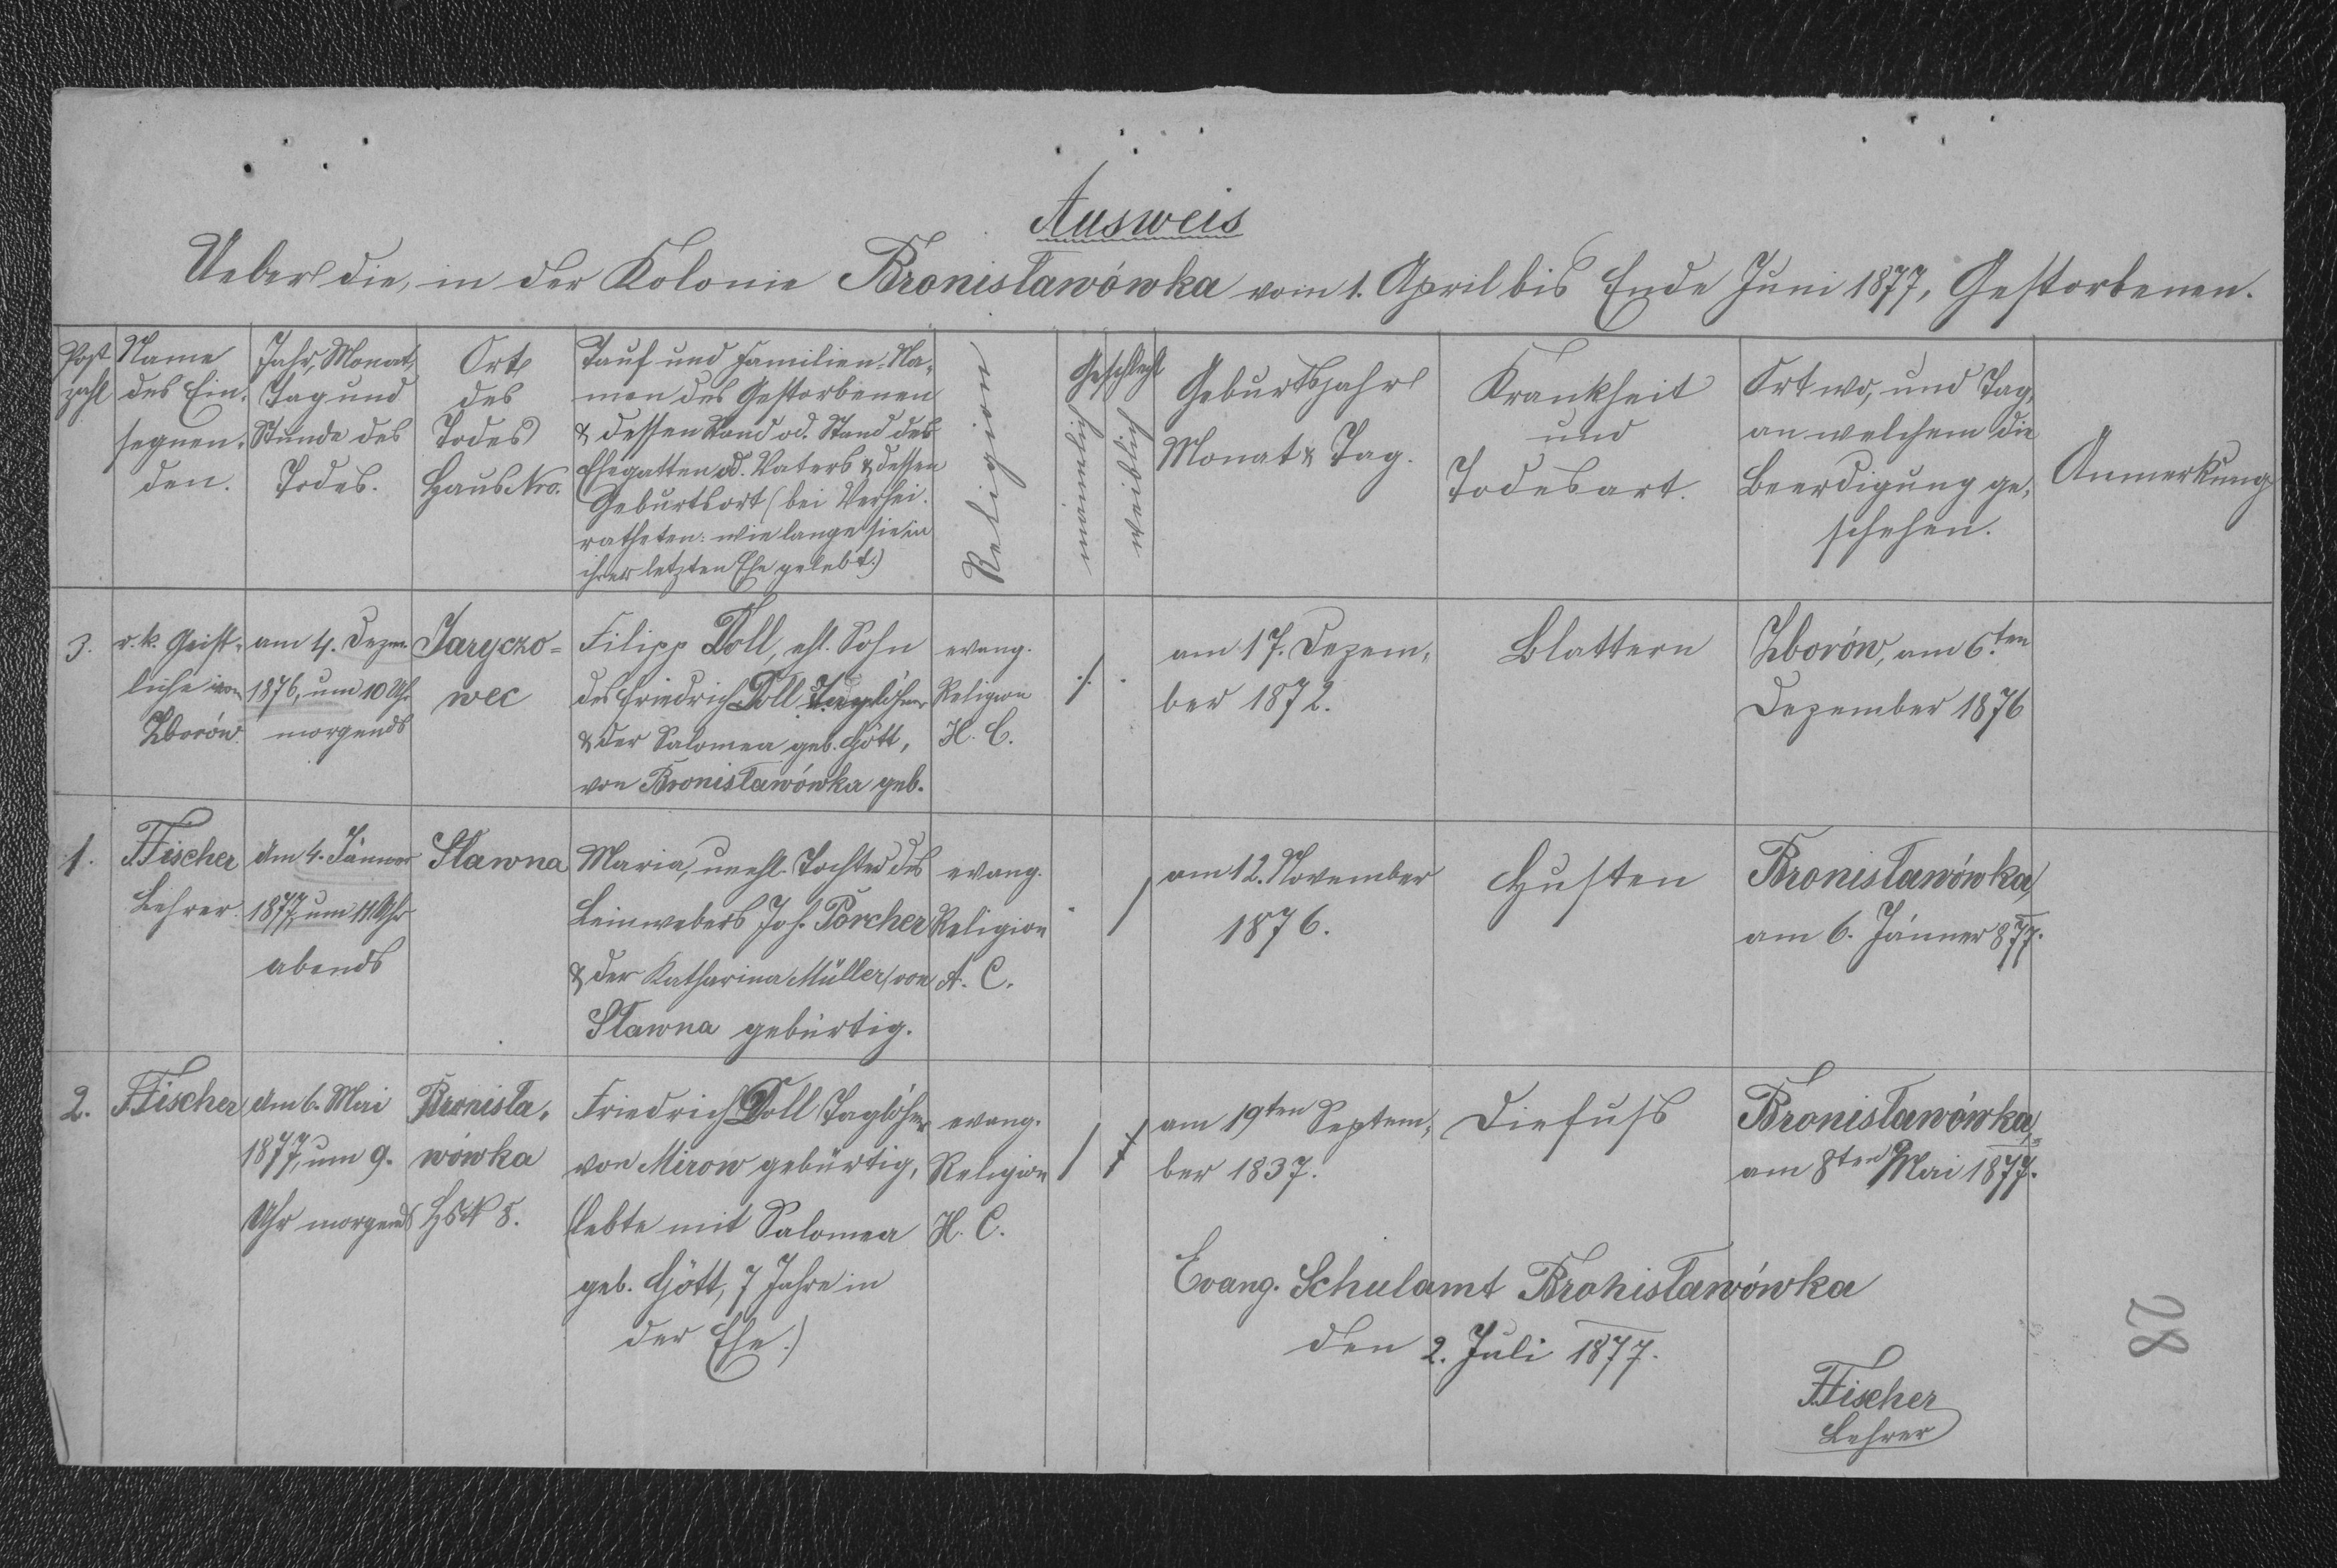 Ausweis
Ueber die, in der Kolonie Bronisławówka vom 1. April bis Ende Juni 1877, Gestorbenen.
Post
zahl
Name
des Ein-
segnen-
den.
Jahr, Monat,
Tag und
Stunde des
Todes.
Ort
des
Todes
Haus Nro.
Tauf und Familien-Na-
men des Gestorbenen
& dessen Stand od. Stand des
Ehegatten od. Vaters & dessen
Geburtsort (bei Verhei-
ratheten: wie lange sie in
ihrer letzten Ehe gelebt.)
Religion
Geschlecht
männlich
weiblich
Geburtsjahr
Monat & Tag.
Krankheit
und
Todesart.
Ort wo, und Tag,
an welchem die
Beerdigung ge-
schehen.
Anmerkung
3.
r. k. Geist-
liche von
Zborów.
am 4. Dezem.
1876, um 10 Uhr
morgends
Jaryczo-
wec
Filipp Doll, ehl. Sohn
des Friedrich Doll Taglöhner
& der Salomea geb. Gött,
von Bronisławówka geb.
evang.
Religion
H. C.
/
am 17. Dezem-
ber 1872.
Blattern
Zborów, am 6.ten
Dezember 1876
1.
F. Fischer
Lehrer.
Am 4. Jänner
1877, um 11 Uhr
abends
Sławna
Maria, unehl. Tochter des
Leinwebers Joh. Porcher
& der Katharina Müller, von
Sławna gebürtig.
evang.
Religion
A. C.
/
am 12. November
1876.
Husten
Bronisławówka,
am 6. Jänner 877.
2.
F. Fischer
Am 6. Mai
1877, um 9.
Uhr morgends
Bronisła-
wówka
Hs N 5.
Friedrich Doll Taglöhner
von Mirow gebürtig,
(lebte mit Salomea
geb. Gött, 7 Jahre in
der Ehe.)
evang.
Religion
H. C.
/
am 19ten Septem-
ber 1837.
Diefuß
Bronisławówka,
am 8ten Mai 1877.
Evang. Schulamt Bronisławówka
den 2. Juli 1877.
F. Fischer
Lehrer
28